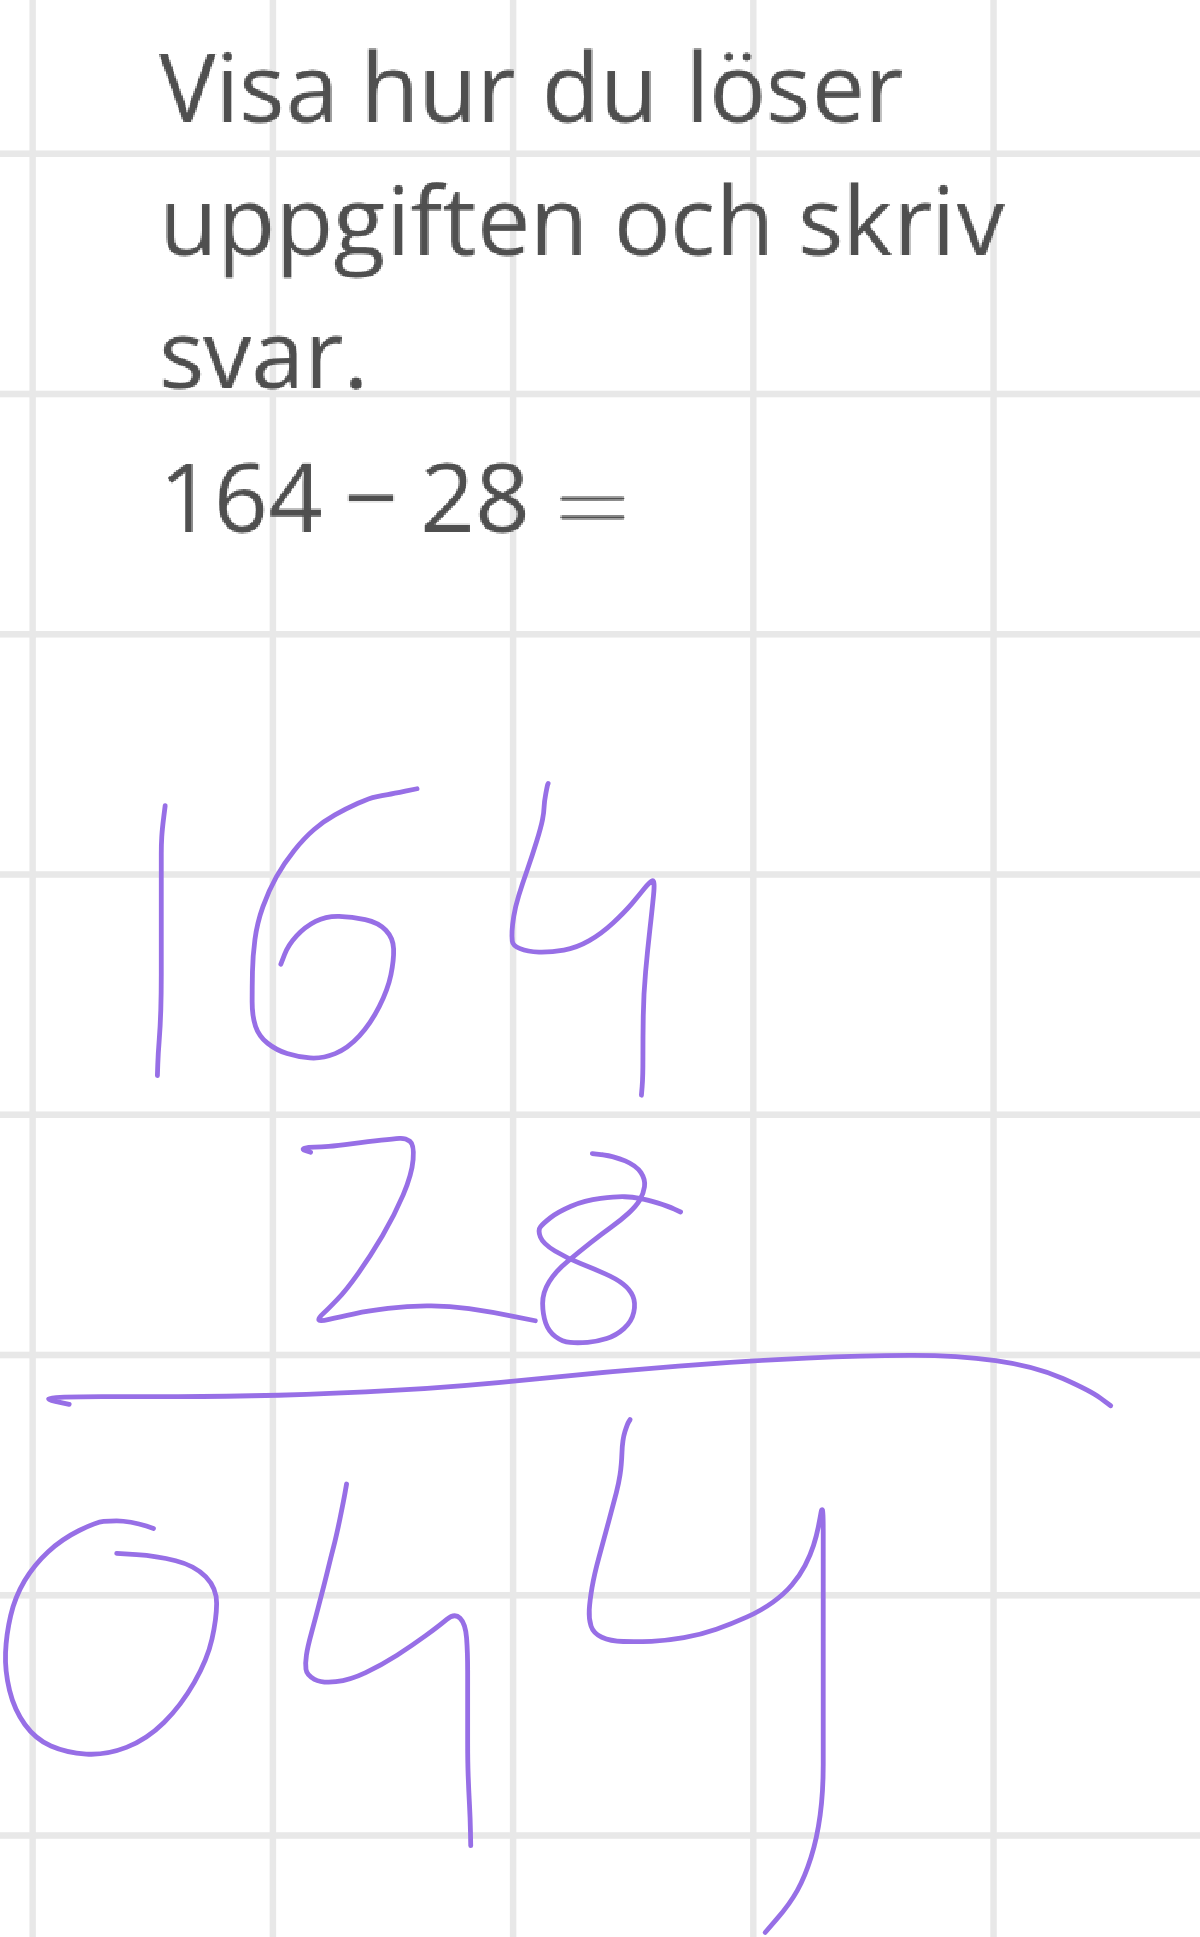 Visa hur du löser
uppgiften och skriv
svar.
164 − 28 =
164
28
044